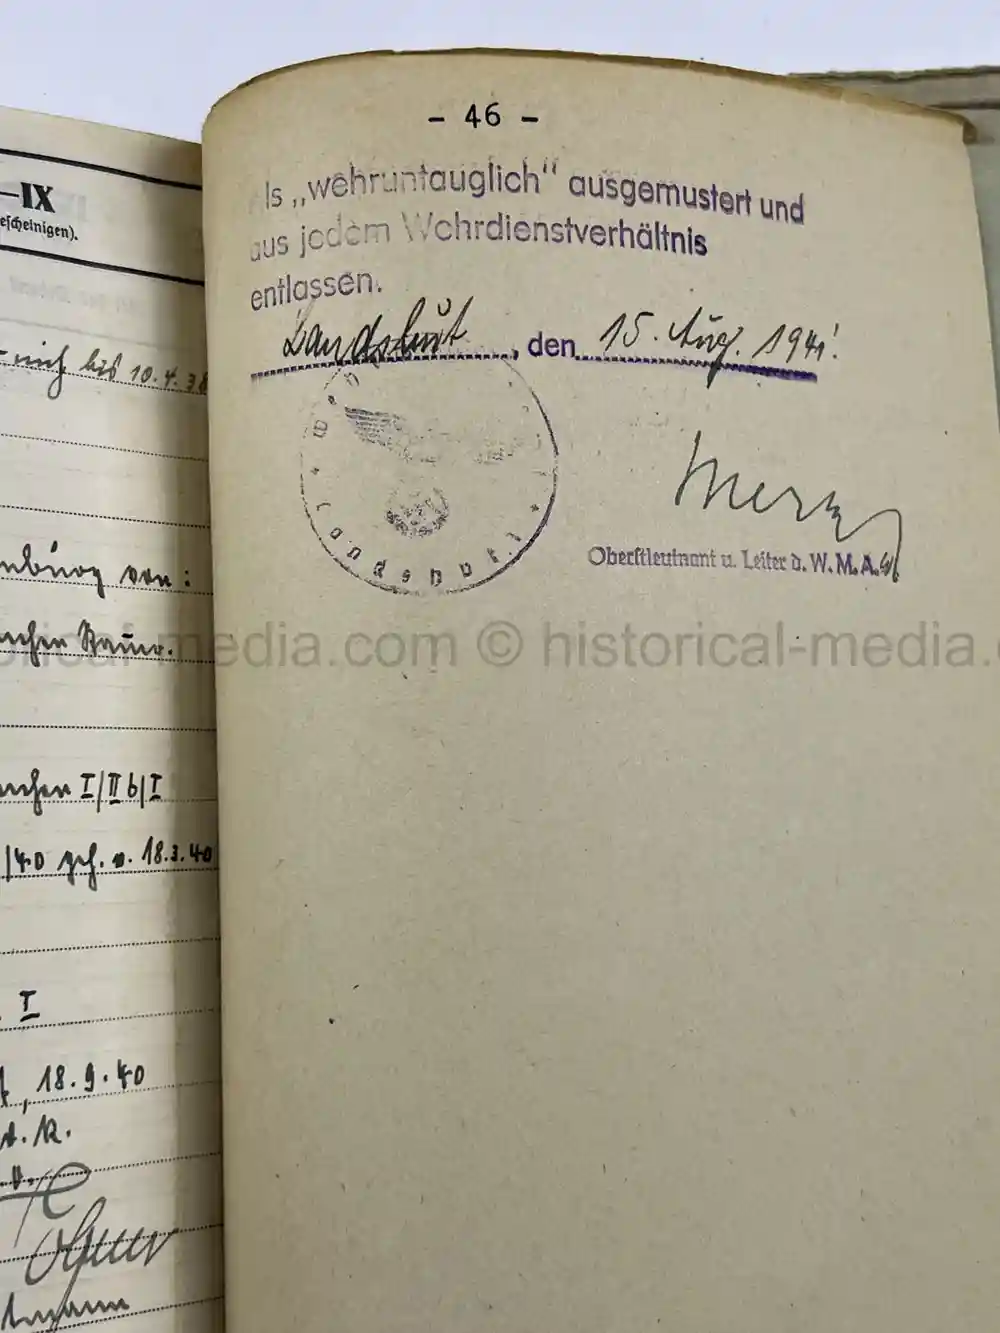 –IX
escheinigen).
bis 10.4.38
von:
I/II b/I
/40 geh. v. 18.3.40
I
, 18.9.40
– 46 –
ls „wehruntauglich“ ausgemustert und
aus jedem Wehrdienstverhältnis
entlassen.
Landshut, den 15. Aug. 1941.
Landshut
Oberstleutnant u. Leiter d. W.M.A.
ical-media.com © historical-media.